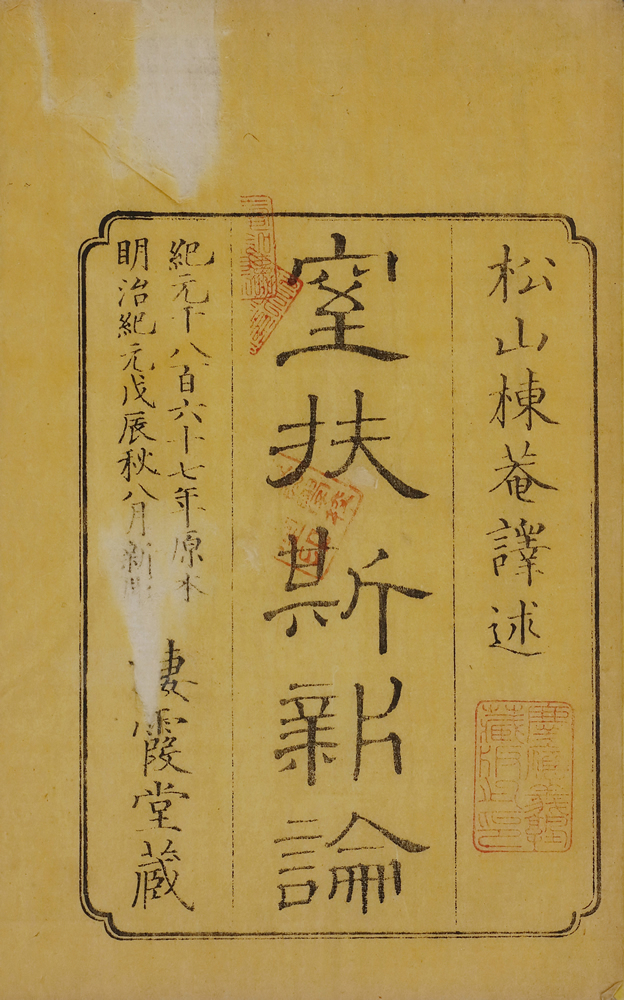 松山棟菴譯述
窒扶斯新論
紀元千八百六十七年原本
明治紀元戊辰秋八月新
棲霞堂藏